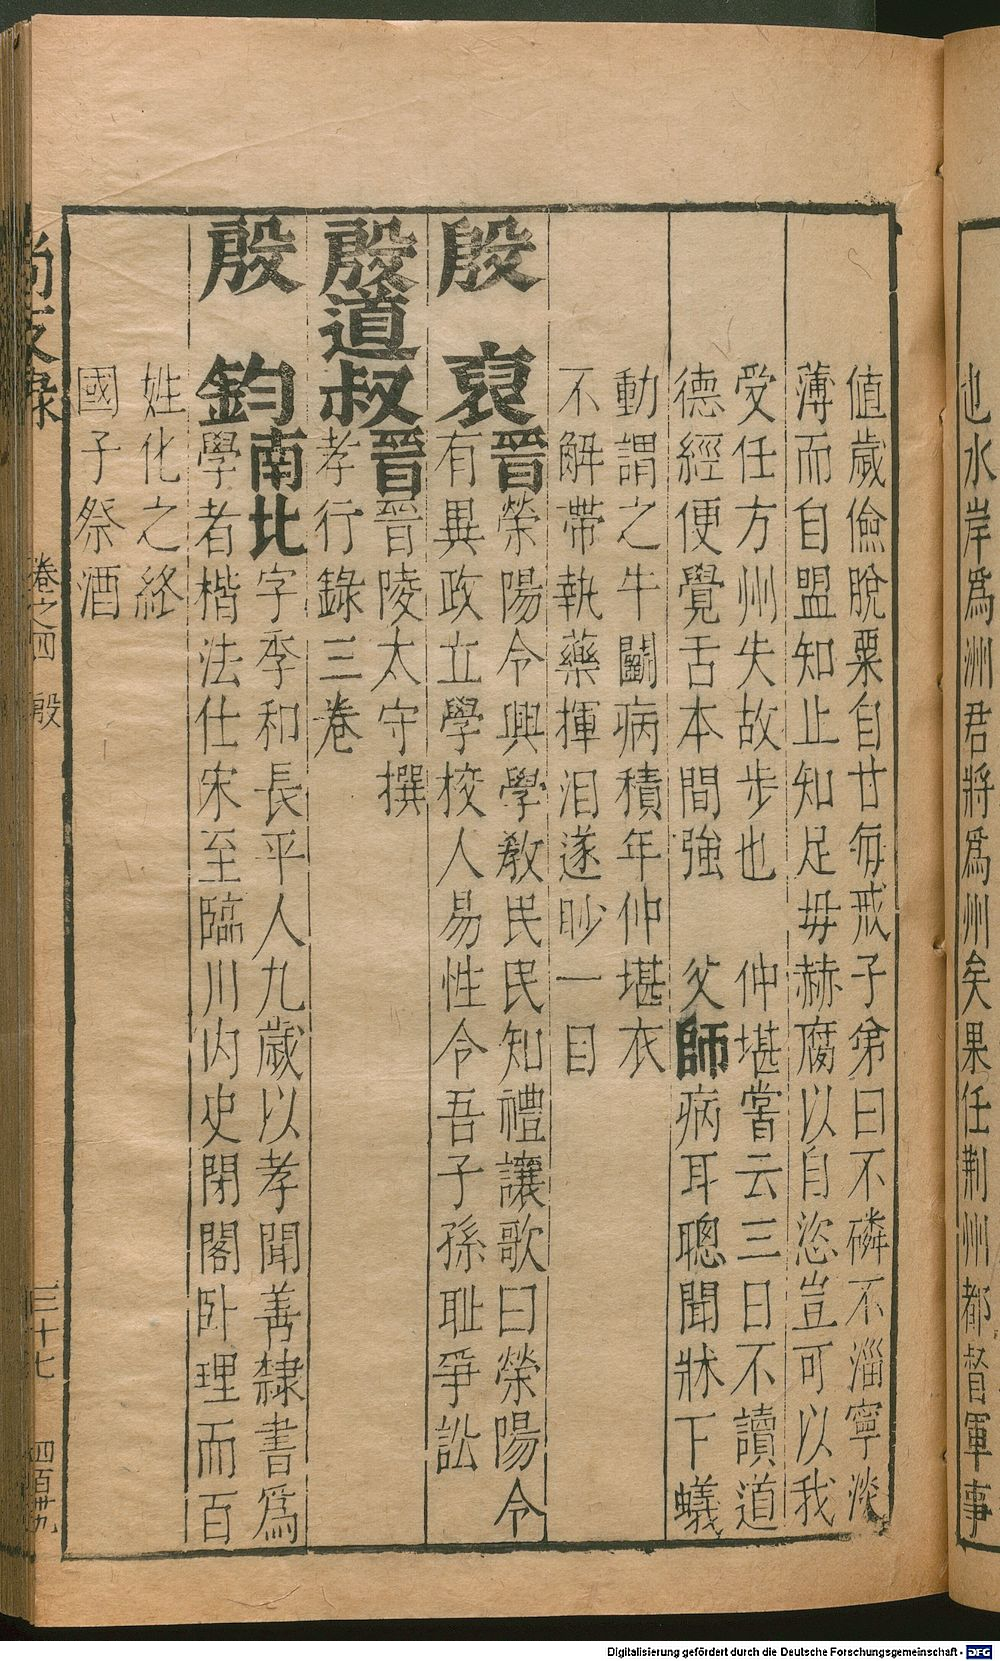 也水岸爲洲君將爲州矣果任荆州都督軍事
值歲儉脫粟自甘每戒子弟曰不磷不淄寧淡
薄而自盟知止知足毋赫腐以自恣豈可以我
受任方州失故步也 仲堪嘗云三日不讀道
德經便覺舌本間強 父師病耳聰聞牀下蟻
動謂之牛鬬病積年仲堪衣
不解帶執藥揮泪遂眇一目
殷 裒
晉榮陽令興學敎民民知禮讓歌曰榮陽令
有異政立學校人易性令吾子孫耻爭訟
殷道叔
晉晉陵太守撰
孝行錄三卷
殷 鈞
南北字季和長平人九歲以孝聞善隸書爲
學者楷法仕宋至臨川内史閉閣卧理而百
姓化之終
國子祭酒
尚友錄 卷之四 殷 三十七 四百卅九
Digitalisierung gefördert durch die Deutsche Forschungsgemeinschaft - DFG